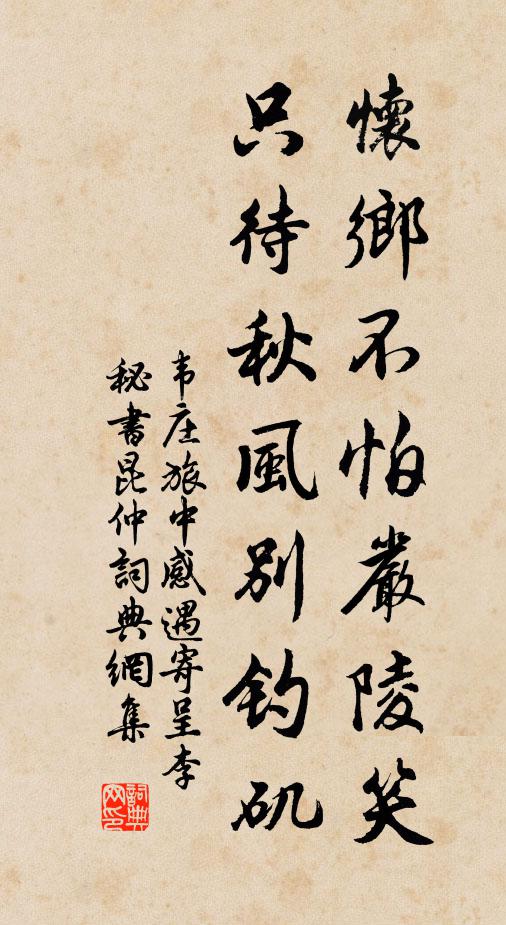 懷鄉不怕嚴陵笑
只待秋風別钓矶
韦庄旅中感遇寄呈李
秘書昆仲詞典網集
詞典
网印